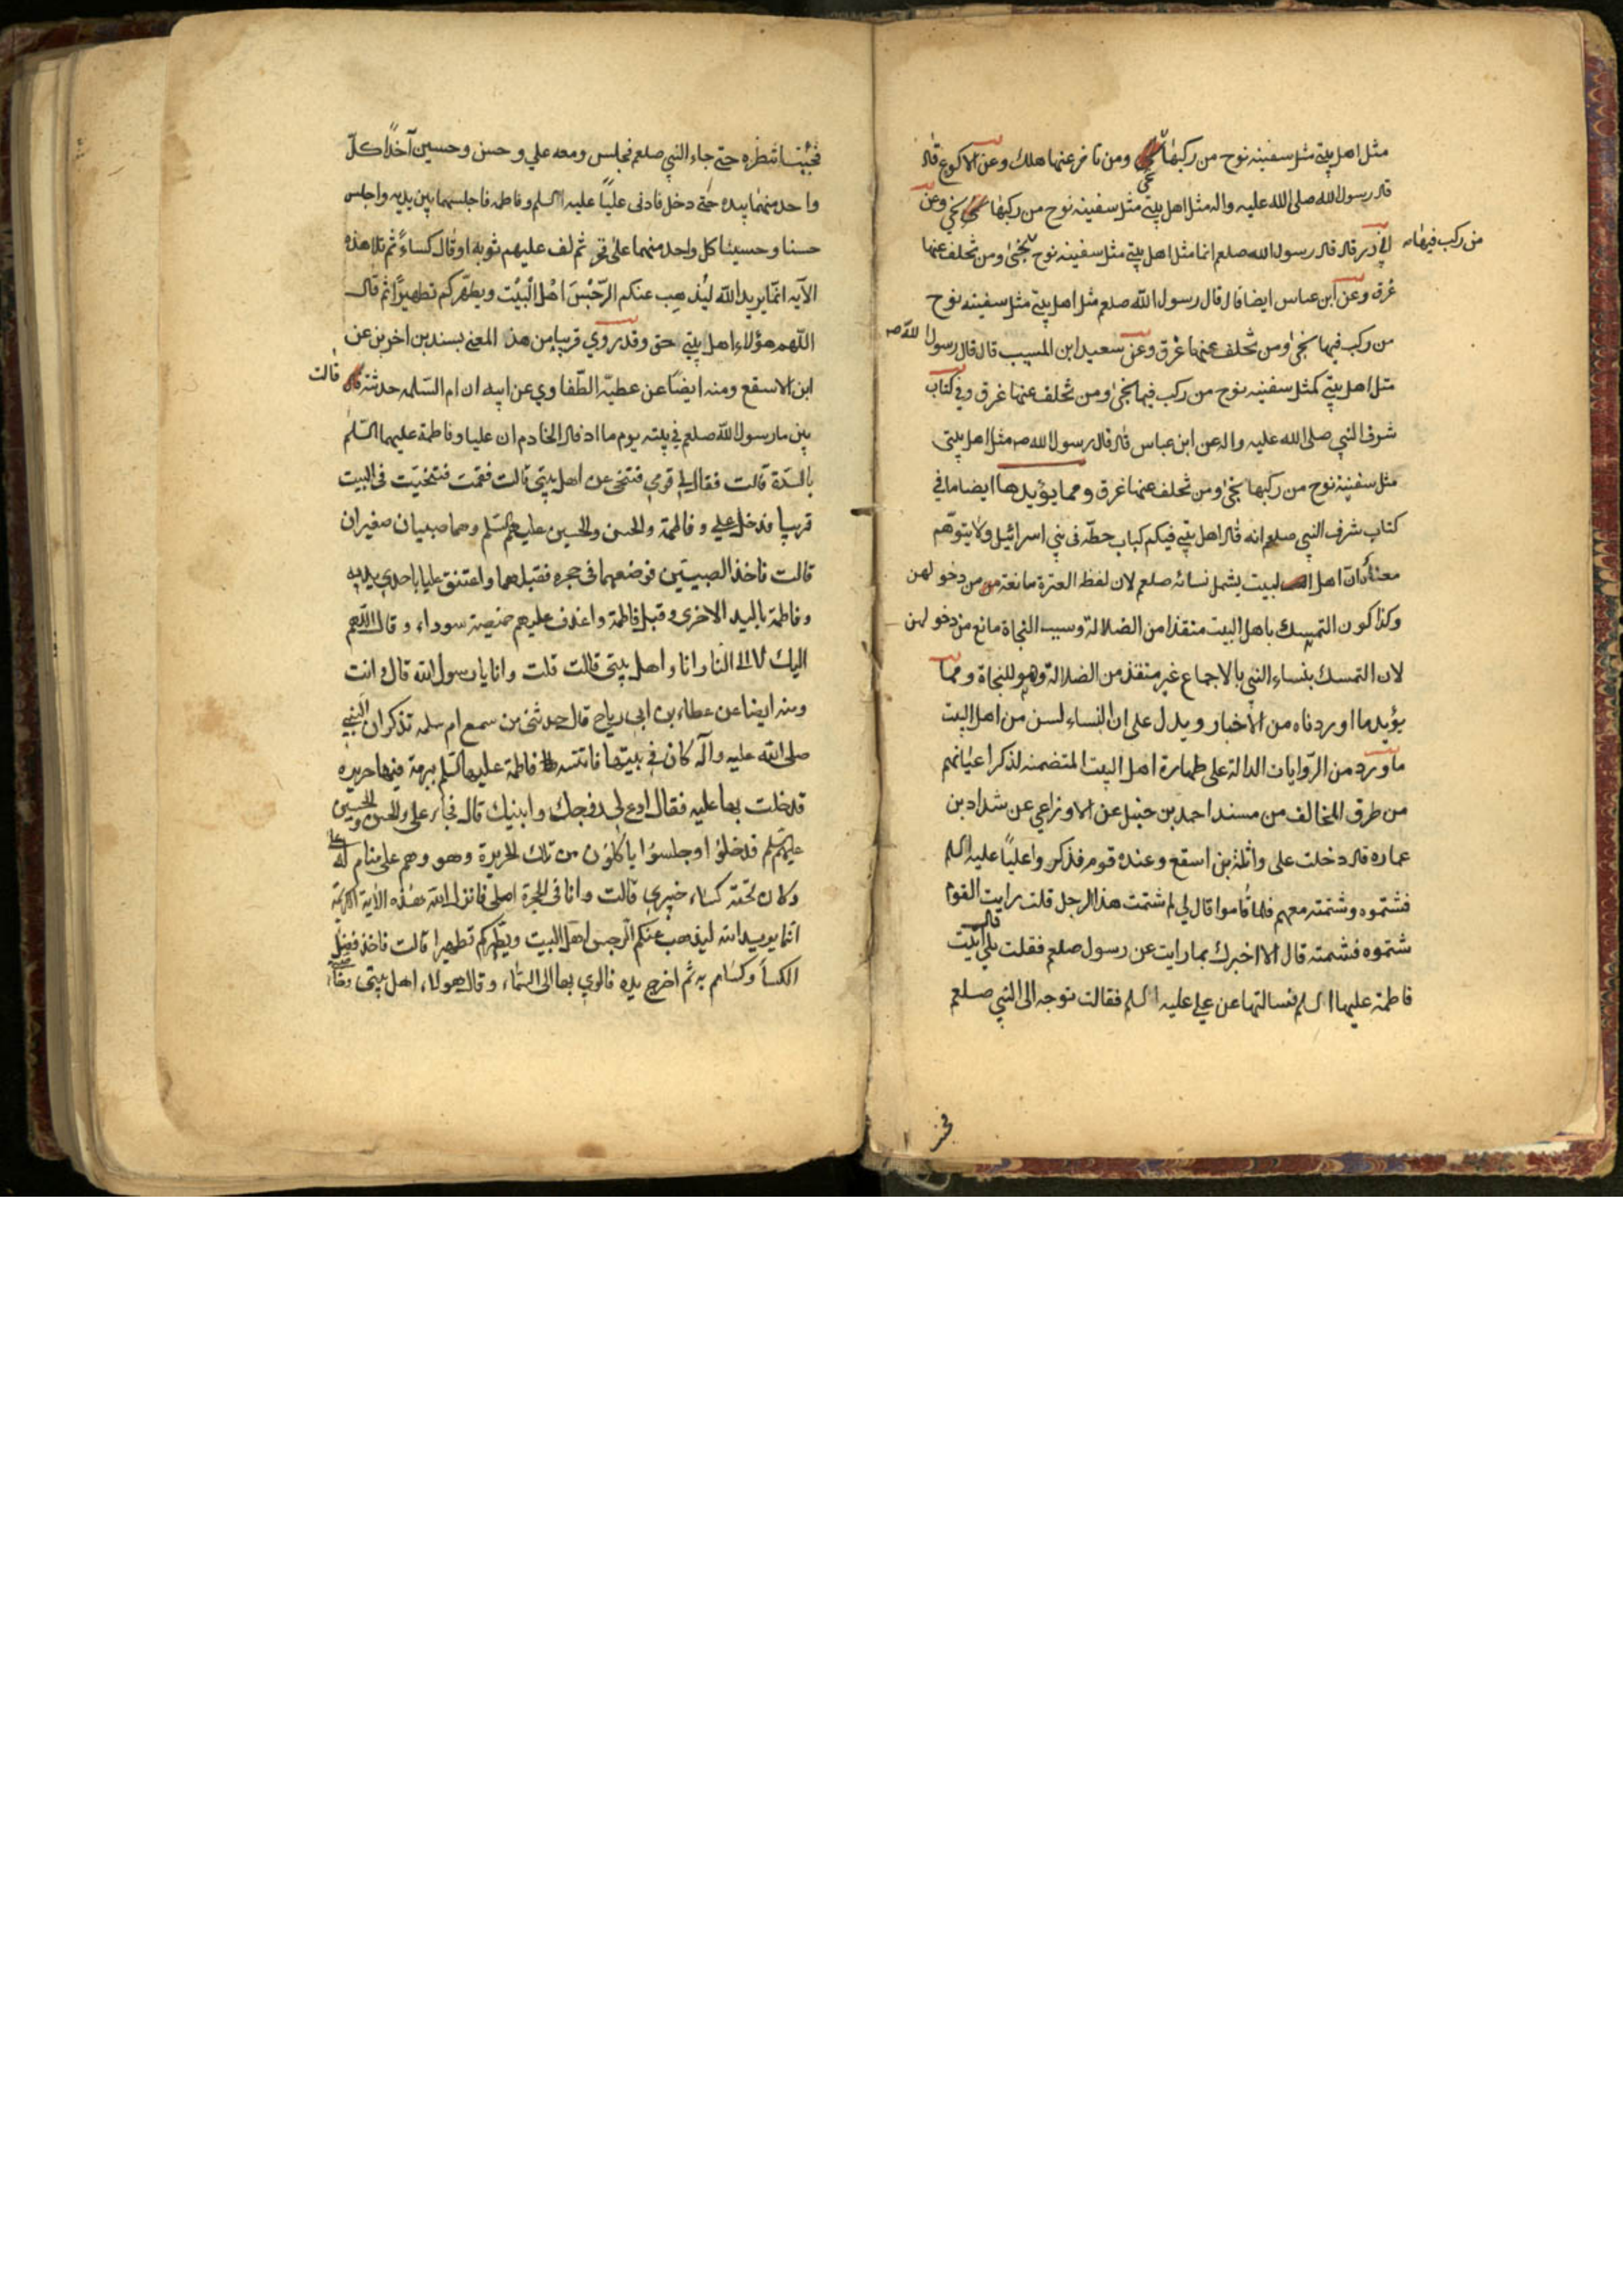 مثل اهل بيتي مثل سفينه نوح من ركبها نجى ومن تاخر عنها هلك وعن الاكوع قال
قال رسول الله صلى الله عليه واله مثل اهل بيتي مثل سفينه نوح من ركبها نجي وعن
ابي ذر قال قال رسول الله صلعم انما مثل اهل بيتي مثل سفينه نوح من ركب فيها نجى ومن تخلف عنها
غرق وعن ابن عباس ايضا قال قال رسول الله صلعم مثل اهل بيتي مثل سفينه نوح
من ركب فيها نجى ومن تخلف عنها غرق وعن سعيد ابن المسيب قال قال رسول الله ص
مثل اهل بيتي كمثل سفينه نوح من ركب فيها نجى ومن تخلف عنها غرق وفي كتاب
شرف النبي صلى الله عليه واله عن ابن عباس قال قال رسول الله ص مثل اهل بيتي
مثل سفينة نوح من ركبها نجى ومن تخلف عنها غرق ومما يؤيدها ايضا ما في
كتاب شرف النبي صلعم انه قال اهل بيتي فيكم كباب حطّه في بني اسرائيل ولا يتوهّم
معناه ان اهل البيت يشمل نسائه صلعم لان لفظ العترة مانعة من دخولهن
وكذا كون التمسك باهل البيت منقذا من الضلالة وسبب النجاة مانع من دخولهن
لان التمسك بنساء النبي بالاجماع غير منقذ من الضلالة وهو للنجاة ومما
يؤيد ما اوردناه من الاخبار ويدل على ان النساء لسن من اهل البيت
ما ورد من الرّوايات الدالة على طهارة اهل البيت المتضمنه لذكر اعيانهم
من طرق المخالف من مسند احمد بن حنبل عن الاوزاعي عن شداد بن
عماره قال دخلت على واثلة بن اسقع وعنده قوم فذكروا عليّاً عليه السلم
فشتموه وشتمته معهم فلما قاموا قال لي لم شتمت هذا الرجل قلت رايت القوم
شتموه فشتمته قال الا اخبرك بما رايت عن رسول صلعم فقلت بلى قال اتيت
فاطمة عليها السلم نسالتها عن علي عليه السلم فقالت توجه الى النبي صلعم
فجئت انتظره حتى جاء النبي صلعم فجلس ومعه علي وحسن وحسين آخذاً كلّ
واحد منهما بيده حتى دخل فادنى عليّاً عليه السلم وفاطمه فاجلسهما بين يديه واجلس
حسنا وحسينا كل واحد منهما على فخذ ثم لف عليهم ثوبه او قال كساءً ثم تلا هذه
الآيه انّما يريد الله ليُذهِب عنكم الرّجْسَ اهْلَ الْبَيْت ويطهّركم تطهيرًا ثم قال
اللّهم هؤلاء اهل بيتي حق وقد روي قريبا من هذا المعنى بسندين اخرين عن
ابن الاسقع ومنه ايضًا عن عطيّه الطّفاوي عن ابيه ان ام السّلمه حدثته قالت
بين ما رسول الله صلعم في بيته يوم ما اذ قال الخادم ان عليا وفاطمة عليهما السّلم
بالسدّة قالت فقال لي قومي فتنحى عن اهل بيتي قالت فقمت فتنحّيت في البيت
قريبا فدخل علي وفاطمة والحسن والحسين عليهم السّلم وهما صبيان صغيران
قالت فاخذ الصبيّين فوضعهما في حجره فقبلهما واعتنق عليا باحدى يديه
وفاطمة باليد الاخرى وقبل فاطمة واغدف عليهم خميصة سوداء وقال اللّهم
اليك لا الى النار انا واهل بيتي قالت قلت وانا يا رسول الله قال وانت
ومنه ايضا عن عطاء بن ابي رياح قال حدثني من سمع ام سلمه تذكر ان النبي
صلى الله عليه وآله كان في بيتها فاتته فاطمة عليها السّلم ببرمة فيها حريره
فدخلت بها عليه فقال ادع لي زوجك وابنيك قال فجاء علي والحسن والحسين
عليهم السّلم فدخلوا وجلسوا ياكلون من تلك الحريرة وهو وهم على منام له
وكان تحته كساء خيبري قالت وانا في الحجرة اصلي فانزل الله هذه الآية الكريمة
انما يريد الله ليذهب عنكم الرجس اهل البيت ويطهركم تطهيرا قالت فاخذ فضل
الكسا وكساهم به ثم اخرج يده فالوي بها الى السماء وقال هولاء اهل بيتي